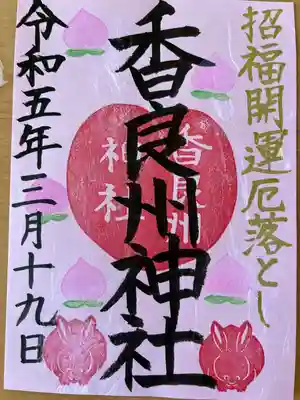 招福開運厄落とし
香良州神社
香良州
神社
令和五年三月十九日